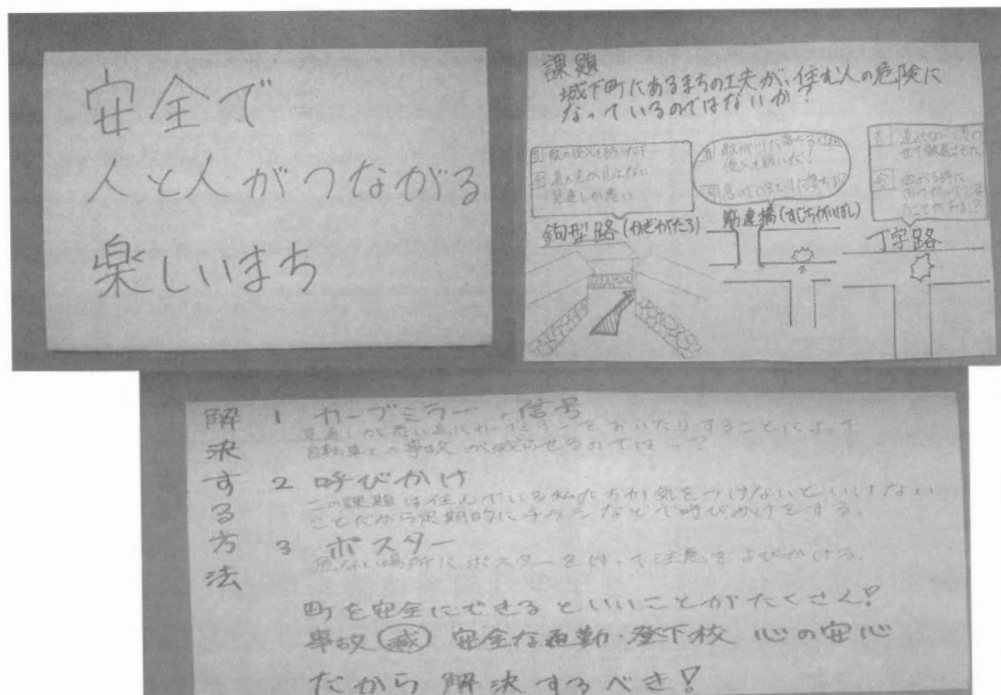 安全で
人と人がつながる
楽しいまち
課題
城下町にあるまちの工夫が、住む人の危険に
なっているのではないか?
道の先が見えない
見通しが悪い
侵入を防いだ!
鉤型路(かぎがたろ)
筋違橋(すじちがいばし)
丁字路
解決する方法
1 カーブミラー・信号
見通しが悪い道にカーブミラーをおいたりすることによって
自転車との事故が減らせるのでは…?
2 呼びかけ
この課題は住んでいる私たちが気をつけないといけない
ことだから定期的にチラシなどで呼びかけをする。
3 ポスター
危ない場所にポスターをはって注意をよびかける。
町を安全にできるといいことがたくさん!
事故 減 安全な通勤・登下校 心の安心
だから解決するべき!